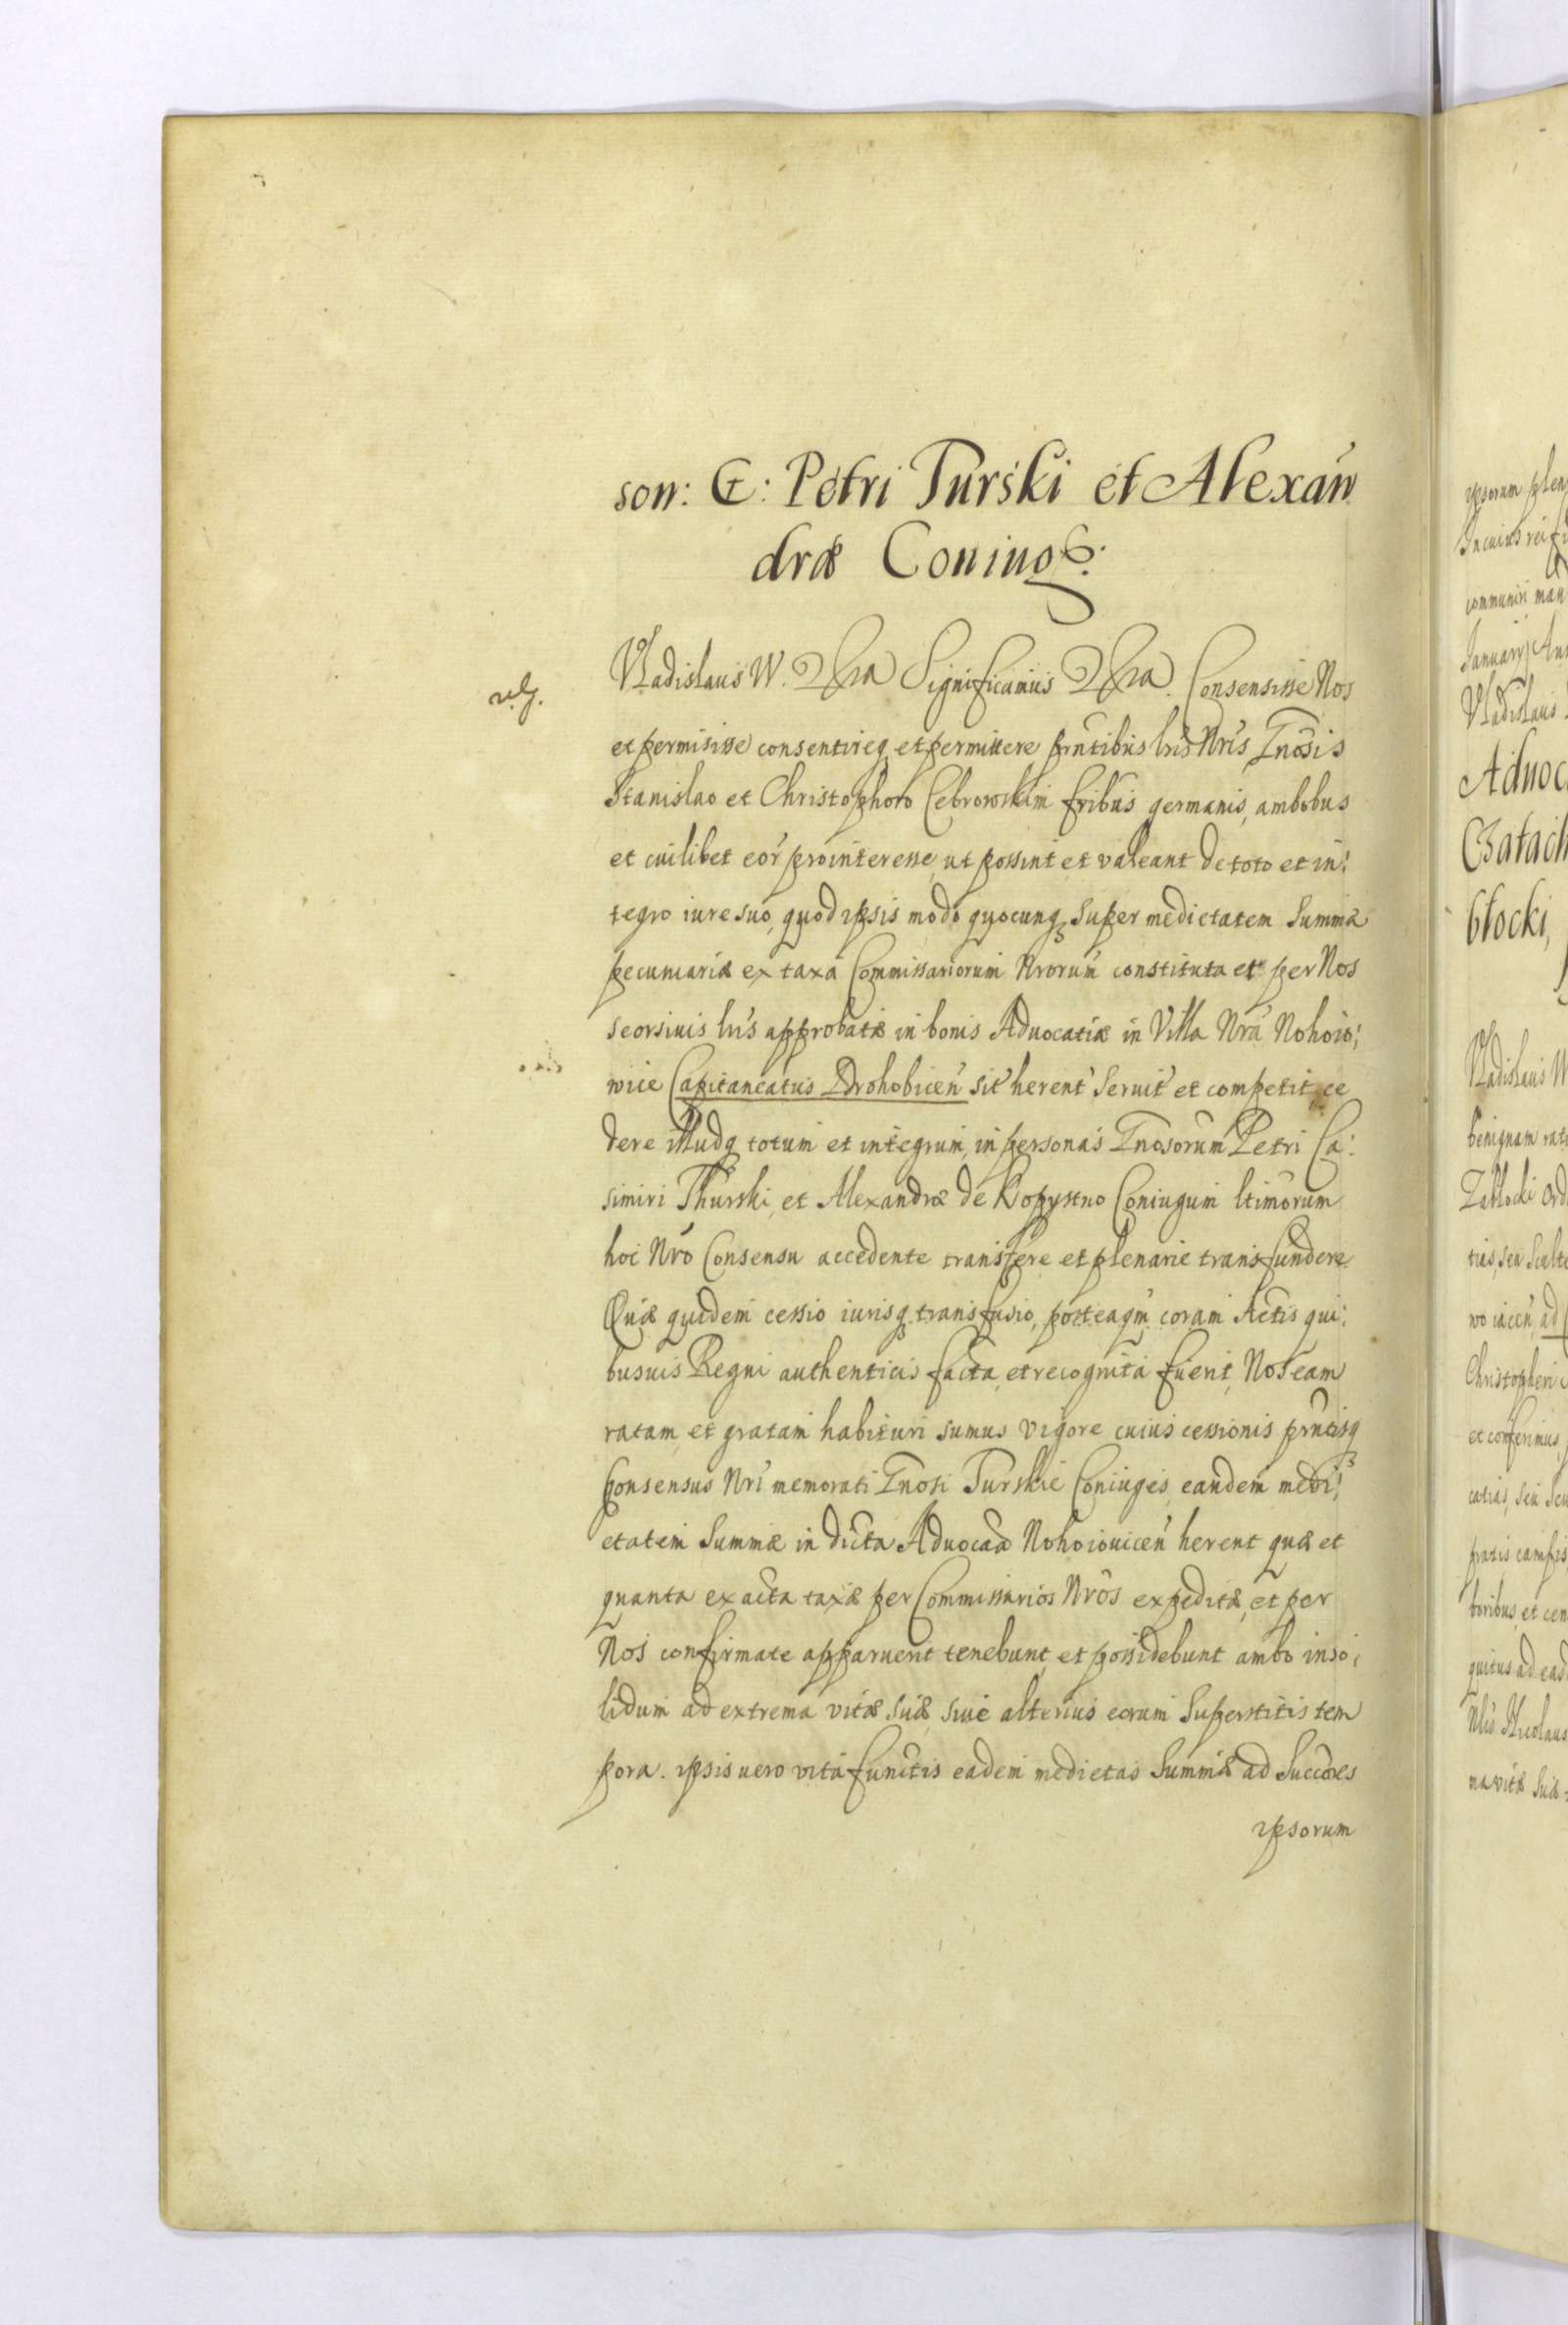 son: G: Petri Turski et Alexan
dræ Coniug:
Vladislaus IV. &ra Significamus &ra. Consensisse Nos
et permisisse consentireq et permittere prntibus lris Nris Gnosis
Stanislao et Christophoro Cebrowskim fribus germanis, ambobus
et cuilibet eor prointeresse, ut possint et valeant de toto et in:
tegro iure suo, quod ipsis modo quocunq super medietatem Summæ
pecuniariæ ex taxa Commissariorum Nrorum constituta et per Nos
seorsiuis lris approbatæ in bonis Aduocatiæ in Villa Nra Nohoio:
wice Capitaneatus Drohobicen sit herent seruit et competit, ce
dere illudq totum et integrum, in personas Gnosorum Petri Ca:
simiri Thurski, et Alexandræ de Kopystno Coniugum ltimorum
hoc Nro Consensu accedente transfere et plenarie transfundere
Quæ quidem cessio iurisq transfusio, posteaqm coram Actis qui:
busuis Regni authenticis facta, et recognita fuerit, Nos eam
ratam et gratam habituri sumus vigore cuius cessionis prntisq
Consensus Nri memorati Gnosi Turskie Coniuges, eandem medi:
etatem Summæ in dicta Aduocaa Nohoiouicen herent quæ et
quanta ex acta taxæ per Commissarios Nros expeditæ, et per
Nos confirmate apparuerit tenebunt, et possidebunt ambo inso:
lidum ad extrema vitæ suæ, siue alterius eorum Superstitis tem
pora. ipsis uero vita functis eadem medietas Summæ ad Succores
ipsorum
ipsorum plen
In cuius rei fi
communiri man
January An
Vladislaus
Aduoc
błocki,
Vladislaus IV
benignam rat
Zabłocki ord
tias, seu Sculte
wo iacen, ad
Christopheri
et conferimus
catias, seu Scu
pratis campis
boribus, et cen
quitus ad ead
Nlis Nicolaus
ma vitæ suæ